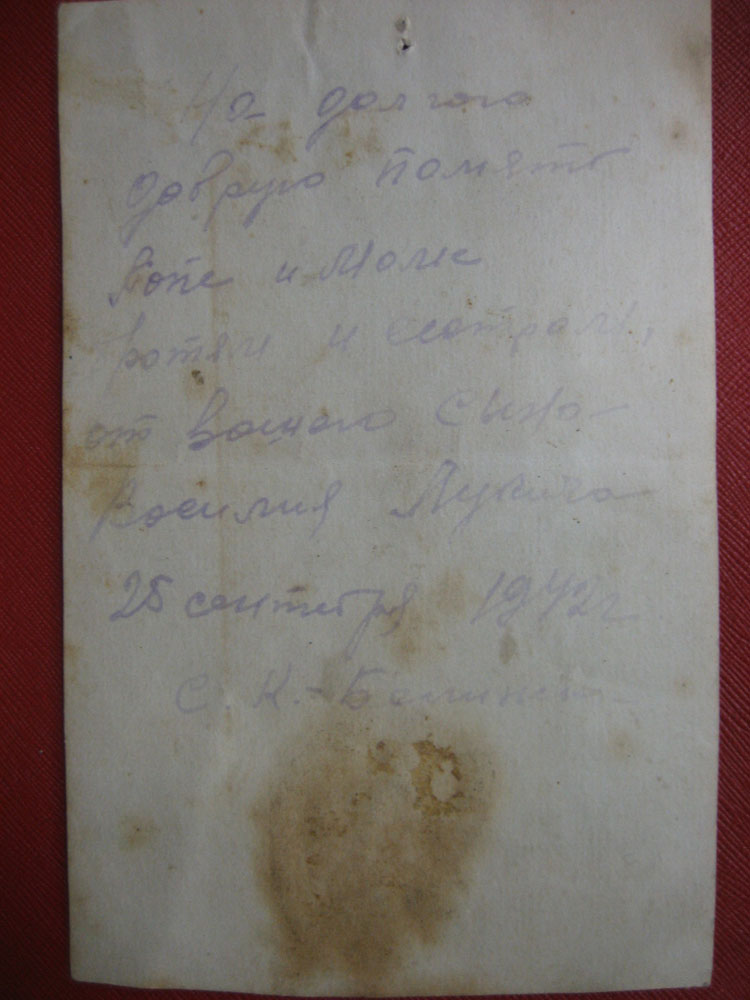 На долгого
добрую память
Папе и Маме
Братям и сестрам,
от вашего сына
Василия Лукича
25 сентебря 1942 г
С. К.-